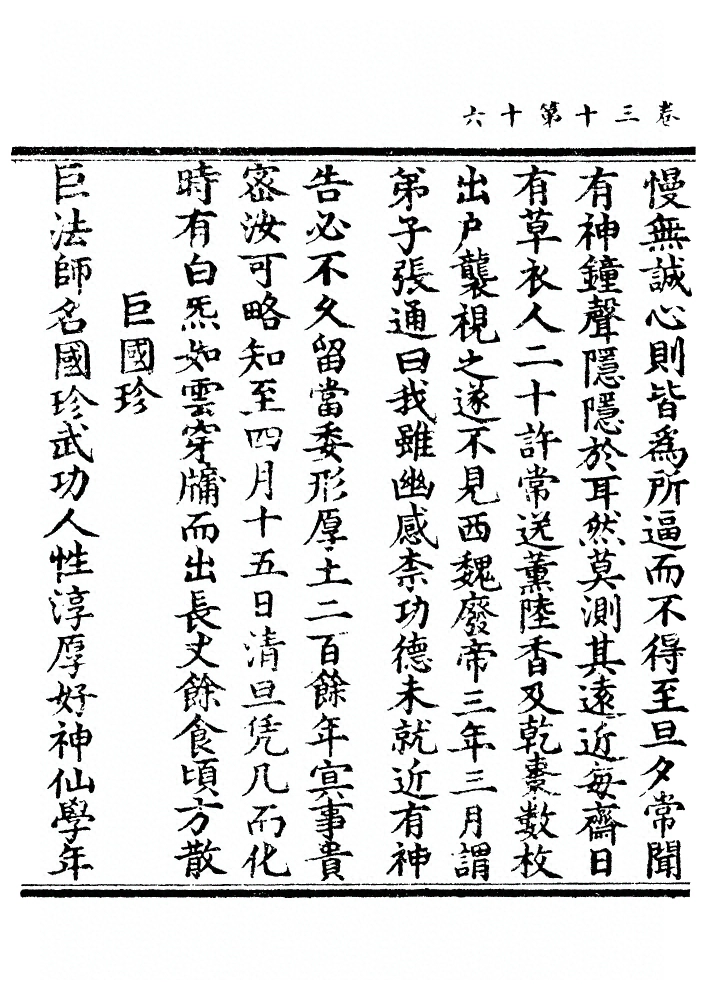 卷三十第十六
慢無誠心則皆為所逼而不得至旦夕常聞
有神鐘聲隱隱於耳然莫測其遠近每齋日
有草衣人二十許常送薰陸香及乾棗數枚
出戶襲視之遂不見西魏廢帝三年三月謂
弟子張通曰我雖幽感柰功德未就近有神
告必不久留當委形厚土二百餘年冥事貴
宻汝可略知至四月十五日清旦凭几而化
時有白炁如雲穿牖而出長丈餘食頃方散
巨國珍
巨法師名國珍武功人性淳厚好神仙學年